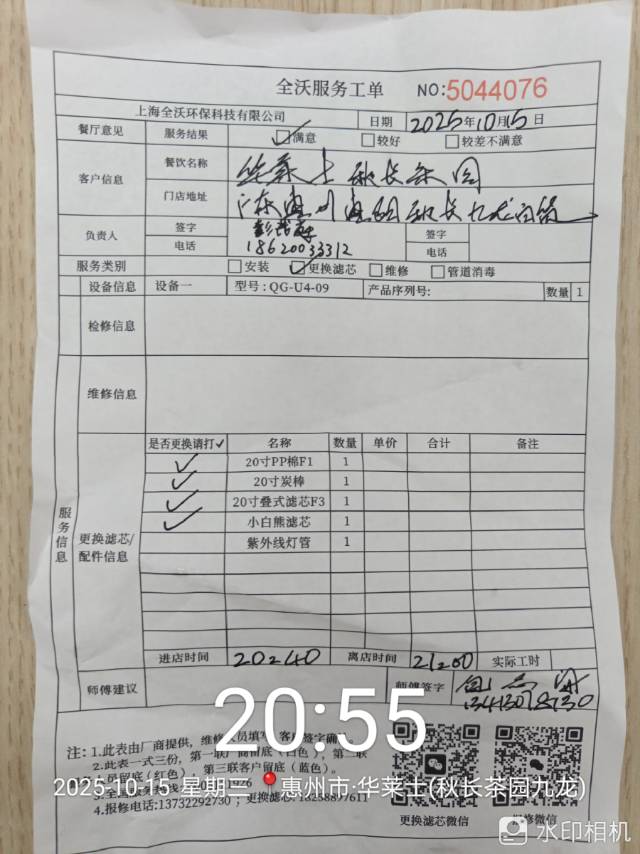 全沃服务工单 NO:5044076
上海全沃环保科技有限公司 日期 2025年10月15日
餐厅意见 服务结果 ☑满意 □较好 □较差不满意
客户信息 餐饮名称 华莱士 秋长茶园
门店地址 广东惠州惠阳秋长九龙
负责人 签字 签字
电话 18620033312 电话
服务类别 □安装 ☑更换滤芯 □维修 □管道消毒
设备信息 设备一 型号:QG-U4-09 产品序列号: 数量 1
检修信息
维修信息
服务信息
更换滤芯/配件信息
是否更换请打✓ 名称 数量 单价 合计 备注
✓ 20寸PP棉F1 1
✓ 20寸炭棒 1
✓ 20寸叠式滤芯F3 1
✓ 小白熊滤芯 1
紫外线灯管 1
进店时间 20:40 离店时间 21:00 实际工时
师傅建议 师傅签字
20:55
注:1.此表由厂商提供,维修人员填写,客户签字确认。
2.此表一式三份,第一联厂商留底(白色),第二联
人员留底(红色),第三联客户留底(蓝色)。
2025-10-15 星期三 惠州市·华莱士(秋长茶园九龙)
4.报修电话:13732292730;更换滤芯:18258897611
更换滤芯微信 报修微信
水印相机